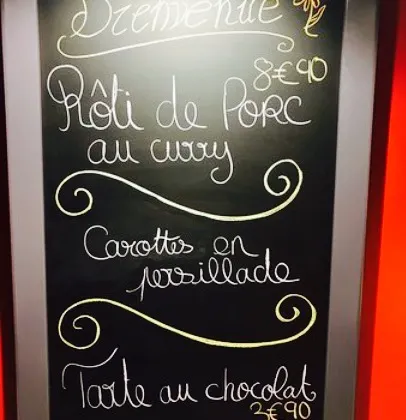 Bienvenue
8€90
Rôti de Porc
au curry
Carottes en
persillade
Tarte au chocolat
2€90